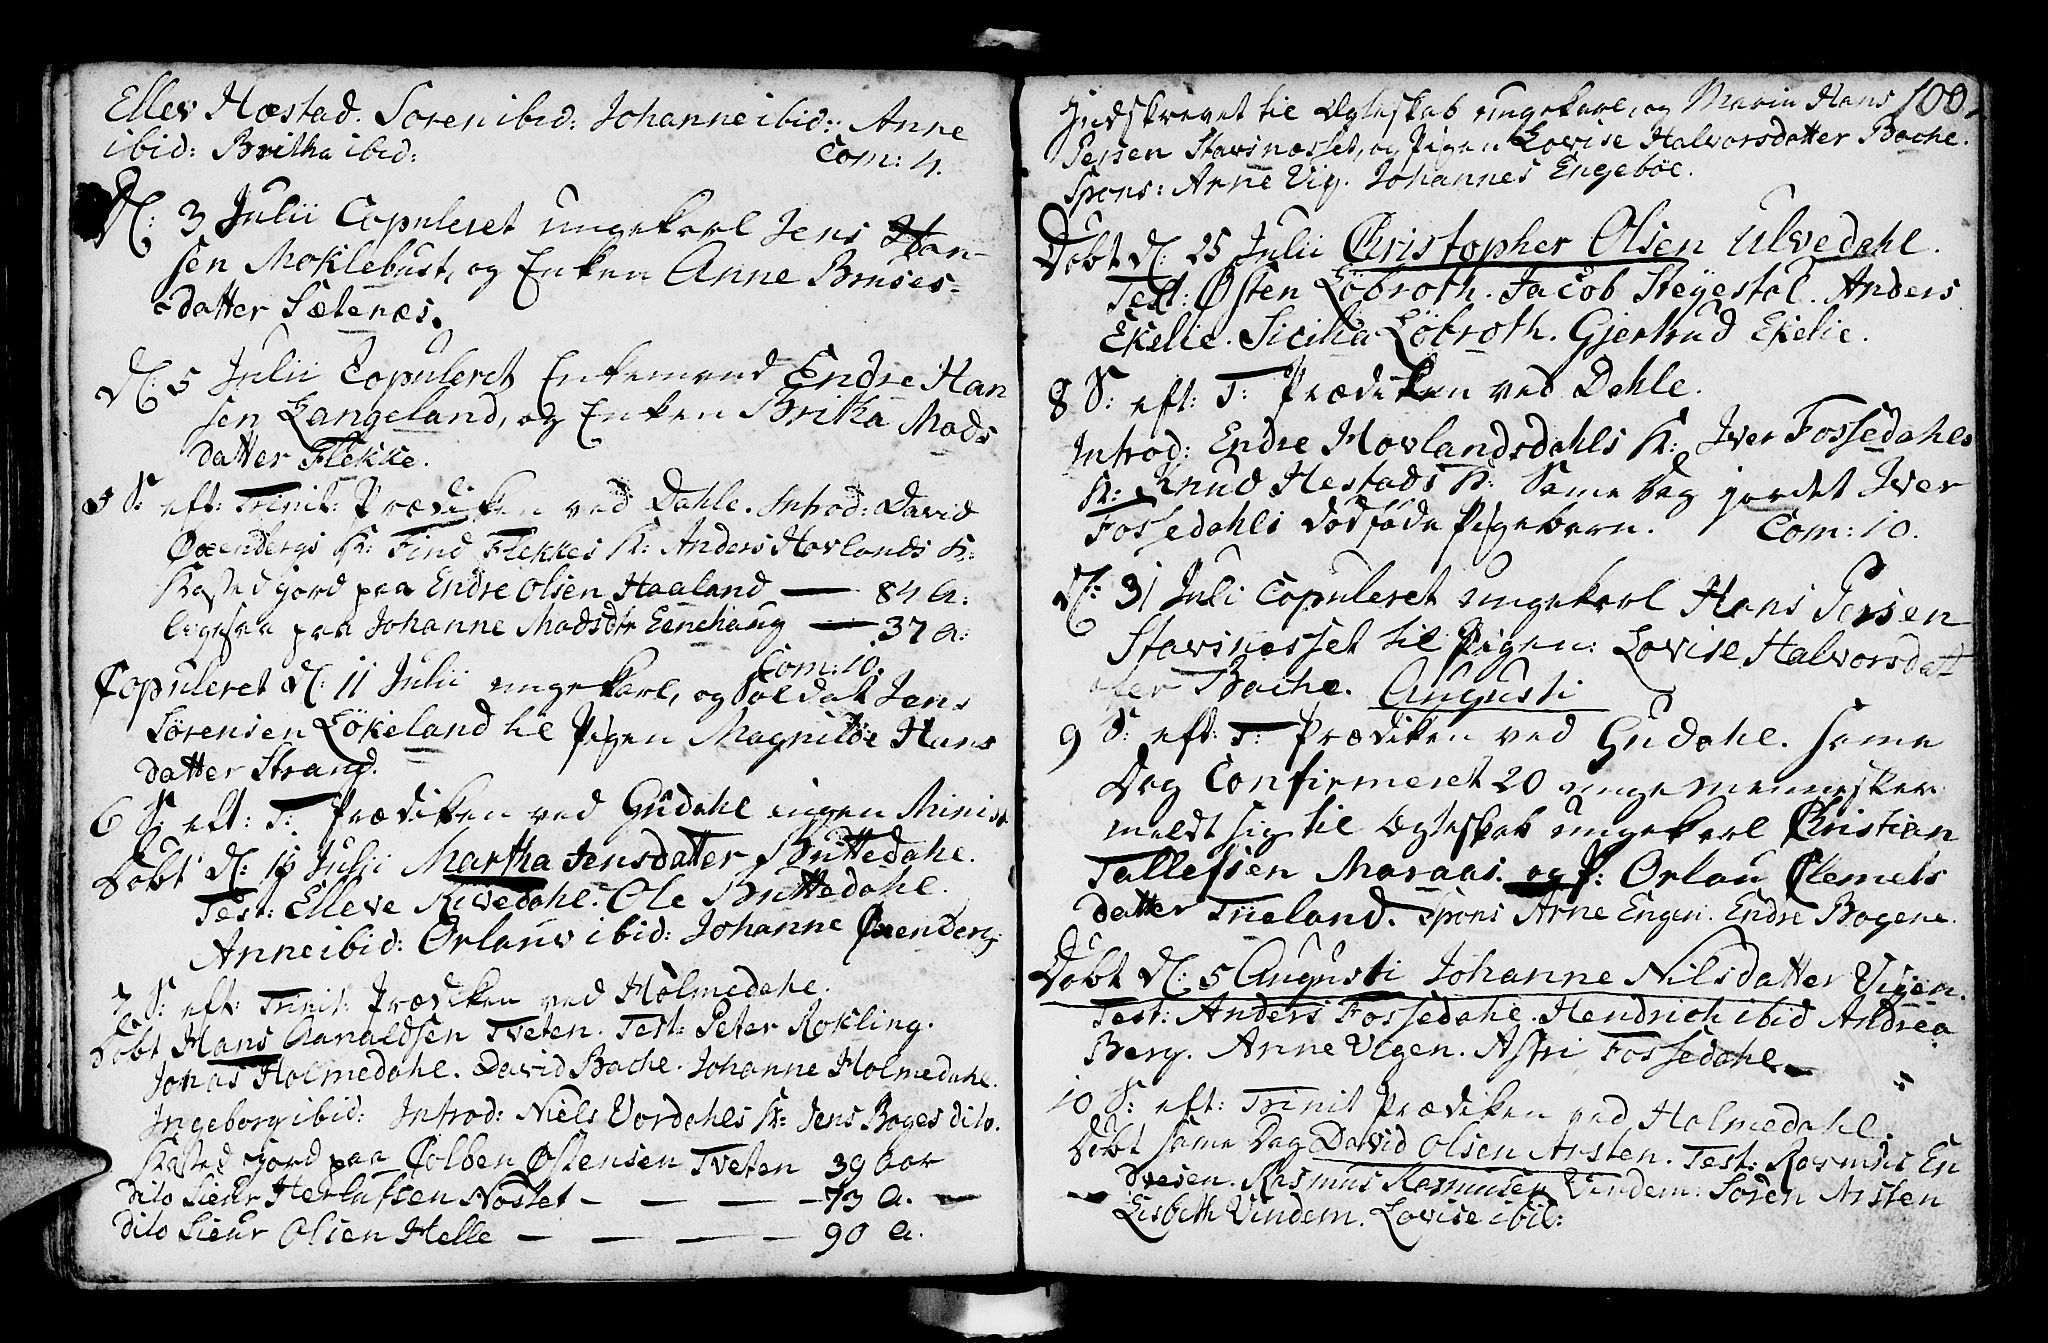 Ellev Hæstad. Soren ibid: Johanne ibid: Anne
ibid: Britha ibid: Com: 4.
D: 3 Julii Copuleret ungekarl Jens Han-
sen Moklebust, og Enken Anne Bruses-
datter Sætenæs.
D: 5 Julii Copuleret Enkemand Endre Han
sen Langeland, og Enken Britha Mads
datter Flekke.
S: eft: Trinit: Prædiken ved Dahle. Introd: David
Oxenbergs K: Find Flekkes K: Anders Hovlands K:
Kasted jord paa Endre Olsen Haaland — 84 a:
ligesaa paa Johanne Madsdtr Eenehaug — 37 a:
Com: 10.
Copuleret D: 11 Julii ungekarl, og Soldat Jens
Sørensen Lökeland til Pigen Magnilde Hans
datter Strand.
6 S: eft: T: Prædiken ved Gudahl ingen Minist
Döbt D: Julii Martha Jensdatter Buttedahl.
Test: Elleve Rivedahl. Ole Buttedahl.
Anne ibid: Orlauv ibid: Johanne Oxenberg.
7 S: eft: Trinit: Prædiken ved Holmedahl.
Döbt Hans Aanaldsen Tveten. Test: Peter Rokling.
Jonas Holmedahl. David Bache. Johanne Holmedahl.
Ingeborg ibid: Introd: Niels Vordahls K: Jens Boges dito.
Kasted jord paa Colben Östensen Tveten 39 aar
dito Sieur Herlufsen Nostet — — — 73 a. —
dito Sieur Olsen Helle — — — — 90 a.
100.
Indskrevet til Egteskab ungekarl, og Hans
Persen Stavsnæsset, og Pigen Lovise Halvorsdatter Bache.
Spons: Arne Vig. Johannes Engeböe.
Döbt D: 25 Julii Christopher Olsen Ulvedahl.
Test: Østen Löbroth. Jacob Stegestöl. Anders
Ekelie. Sicilia Löbroth. Gjertrud Ekelie.
8 S: eft: T: Prædiken ved Dahle.
Introd: Endre Hovlandsdahls K: Iver Fossedahls
K: Knud Hestads K: Same Dag jordet Iver
Fossedahls dödföde Pigebarn. Com: 10.
D: 31 Juli Copuleret ungekarl Hans Persen
Stavsnesset til Pigen: Lovise Halvorsdatt
ter Bache. Augusti
9 S: eft: T: Prædiken ved Gudahl. Same
Dag Confirmeret 20 unge mennesker
meldt sig til Egteskab ungekarl Christian
Tallefsen Maraas. og P: Orlau Clemets
datter Tueland. Spons Arne Engen. Endre Bogene.
Döbt D: 5 Augusti Johanne Nilsdatter Vigen.
Test: Anders Fossedahl. Hendrich ibid Andrea
Berg. Anne Vigen. Astri Fossedahl.
10 S: eft: Trinit Prædiken ved Holmedahl.
Döbt same Dag David Olsen Arsten. Test: Rasmus En
dresen. Rasmus Rasmusen Vindem: Sören Arsten
Lisbeth Vindem. Lovise ibid: